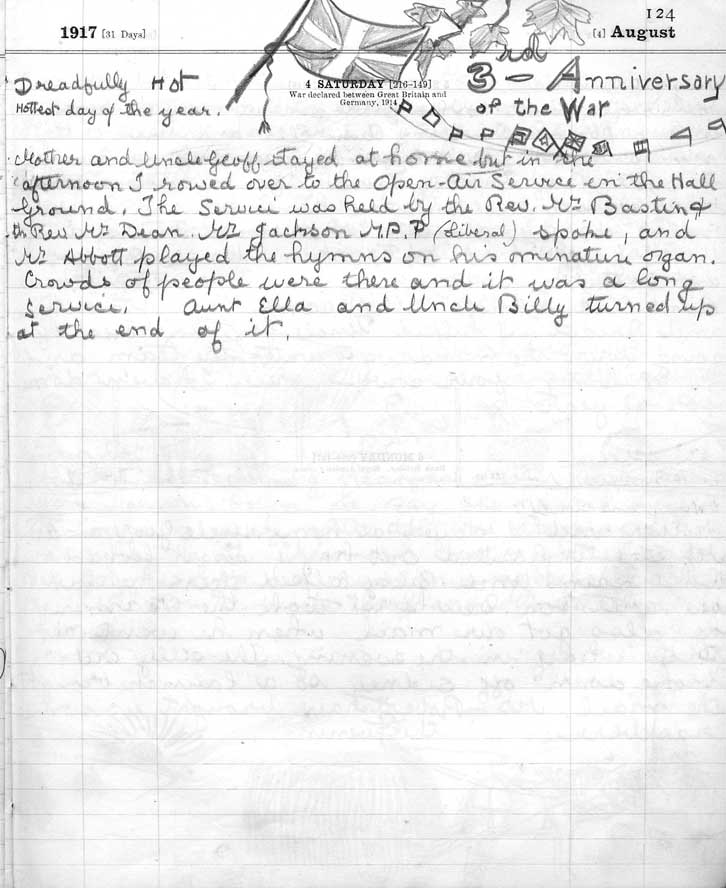 124
1917 [31 Days]
[4] August
4 SATURDAY [216-149]
War declared between Great Britain and
Germany, 1914
Dreadfully Hot
Hottest day of the year.
3rd - Anniversary
of the War
Mother and Uncle Geoff stayed at home but in the
afternoon I rowed over to the Open-Air Service in the Hall
Ground. The Service was held by the Rev. Mr Basting &
th Rev Mr Dean. Mr Jackson M.P.P (Liberal) spoke, and
Mr Abbott played the hymns on his minature organ.
Crowds of people were there and it was a long
Service. Aunt Ella and Uncle Billy turned up
at the end of it.